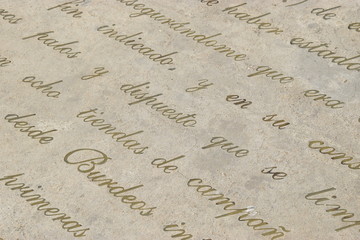 ) de c
asegurándome que haber estado
fin indicado, y en su cons
os palos y dispuesto que era
n ocho tiendas de campañ se limp
desde Burdeos in
primeras